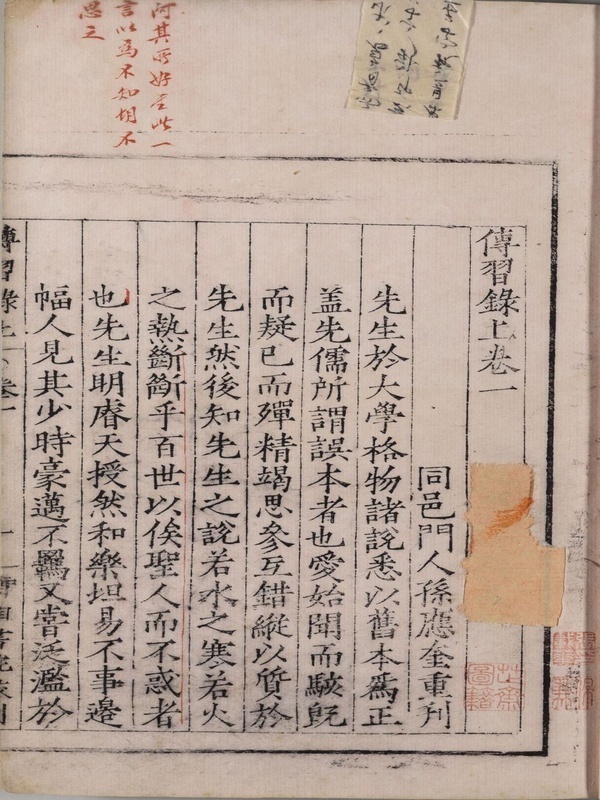 傳習錄上卷一
同邑門人孫應奎重刋
先生於大學格物諸說悉以舊本爲正
盖先儒所謂誤本者也愛始聞而駭旣
而疑已而殫精竭思參互錯縱以質於
先生然後知先生之說若水之寒若火
之熱斷斷乎百世以俟聖人而不惑者
也先生明睿天授然和樂坦易不事邊
幅人見其少時豪邁不羈又嘗泛濫於
傳習錄上
卷一
阿其所好至此一
言以爲不知胡不
思之